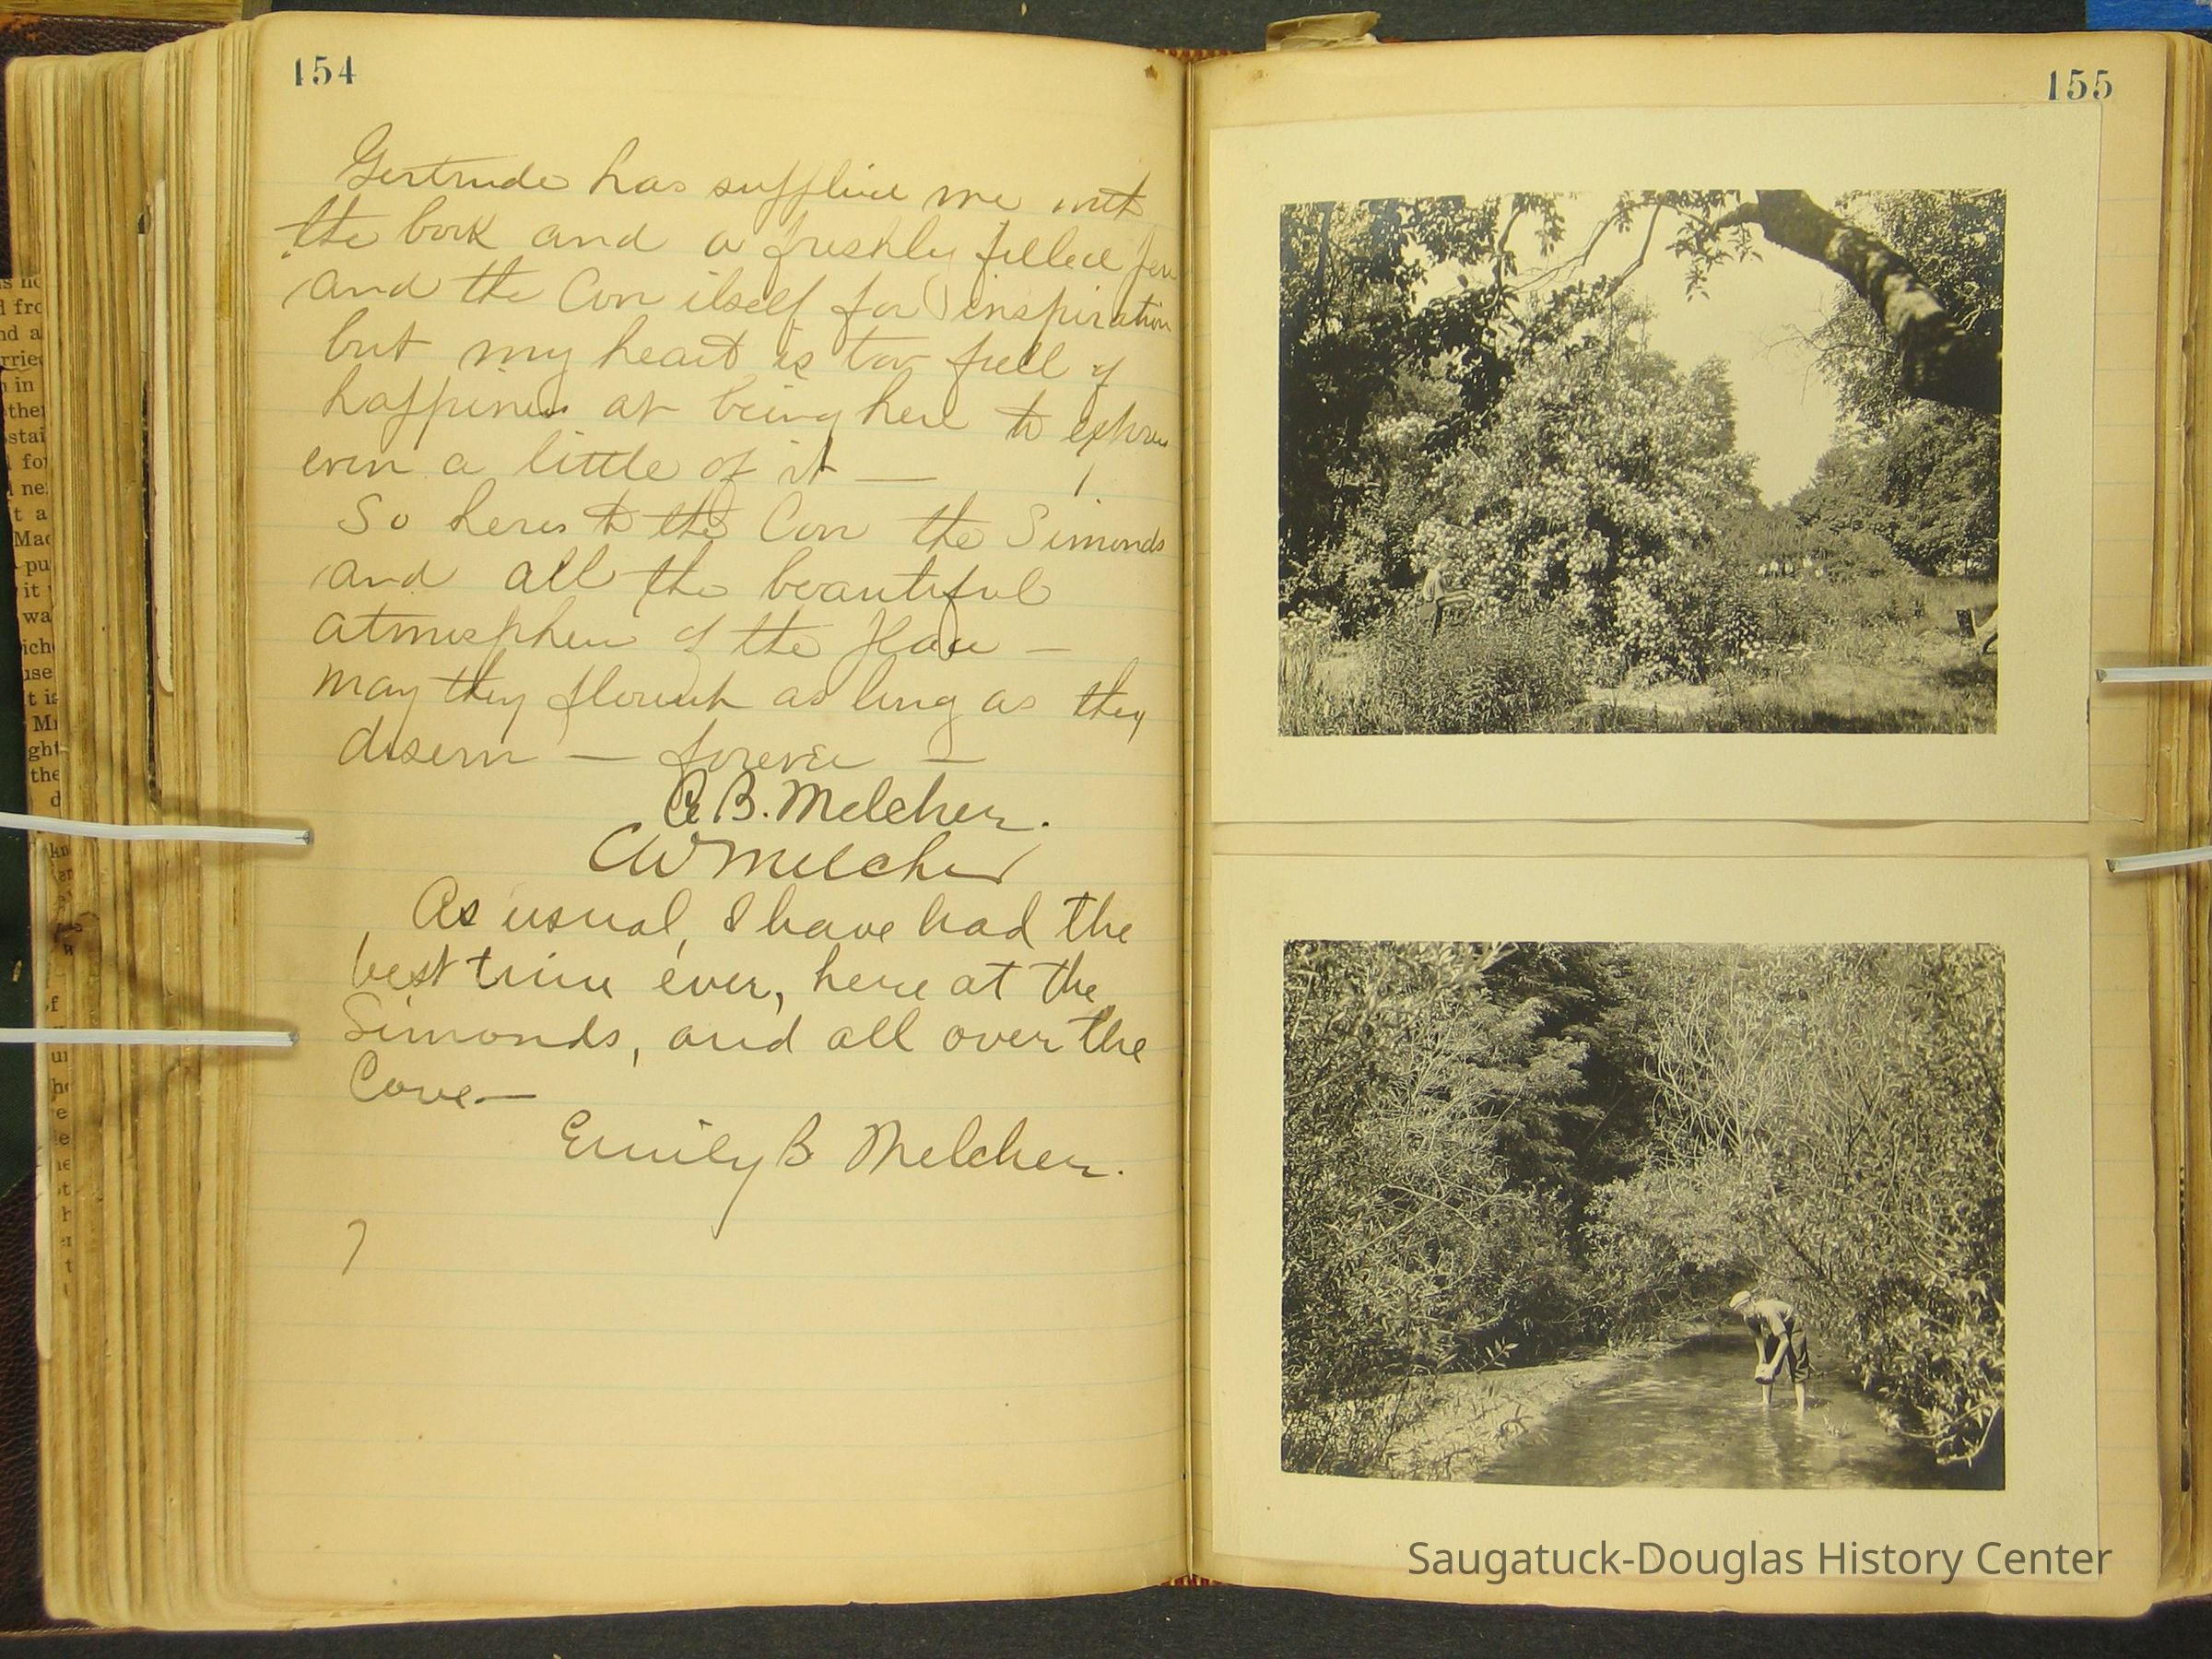 154
Gertrude has supplied me with
the book and a freshly filled pen
and the Cove itself for inspiration
but my heart is too full of
happiness at being here to express
even a little of it —
So heres to the Cove the Simonds
and all the beautiful
atmosphere of the place —
may they flourish as long as they
deserve — forever —
B. Melcher.
CW Melcher
As usual, I have had the
best time ever, here at the
Simonds, and all over the
Cove —
Emily B Melcher.
155
Saugatuck-Douglas History Center